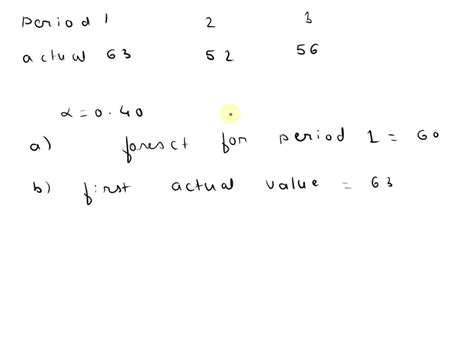 period 1 2 3
actual 63 52 56
α = 0.40
a) foresct for period 1 = 60
b) first actual value = 63